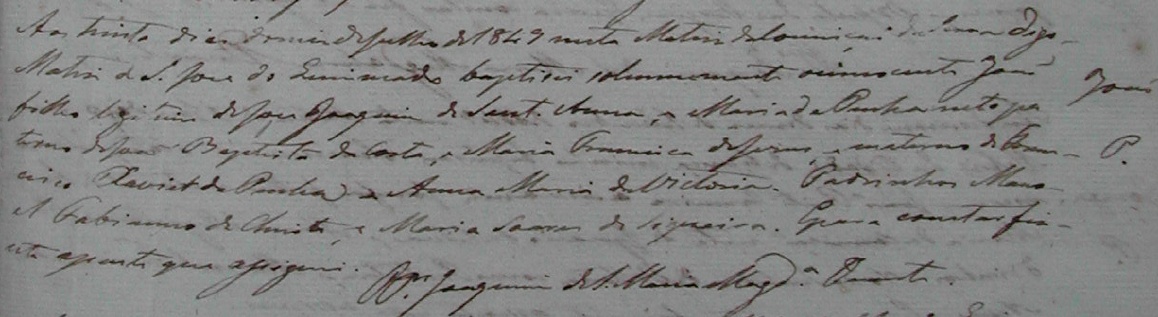 Aos trinta dias do mes de Julho de 1847 nesta Matris da digo
Matris de S. Jose do baptisei solemnemente o innocente José
filho legitimo de Joaquim de Sant. Anna, e Maria da Cunha neto pa
terno de José Baptista da Costa, e Maria Francisca de Jesus e materno de Fran-
cisco Xavier da Cunha e Anna Maria da Victoria. Padrinhos Mano
el Fabianno de Christo, e Maria Soares de Siqueira. E para constar fis
este que assignei.
José
P.
Joaquim de S. Maria Magd.ª